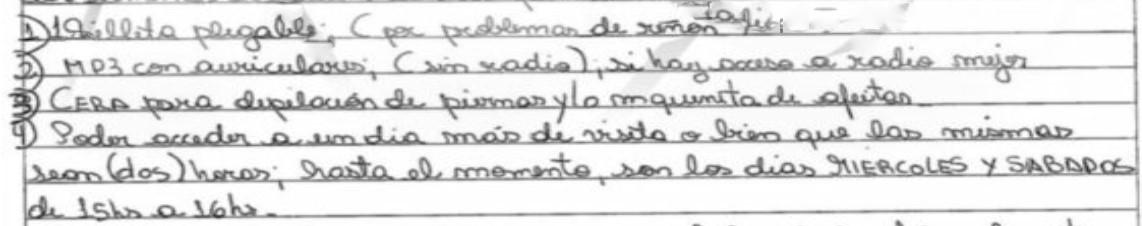 1) 1 Sillita plegable; (por problemas de riñon
2) MP3 con auriculares; (sin radio); si hay acceso a radio mejor
3) CERA para depilación de piernas y/o maquinita de afeitar
4) Poder acceder a un dia más de visita o bien que las mismas
sean (dos) horas; hasta el momento, son los días MIERCOLES Y SABADOS
de 15hs a 16hs.